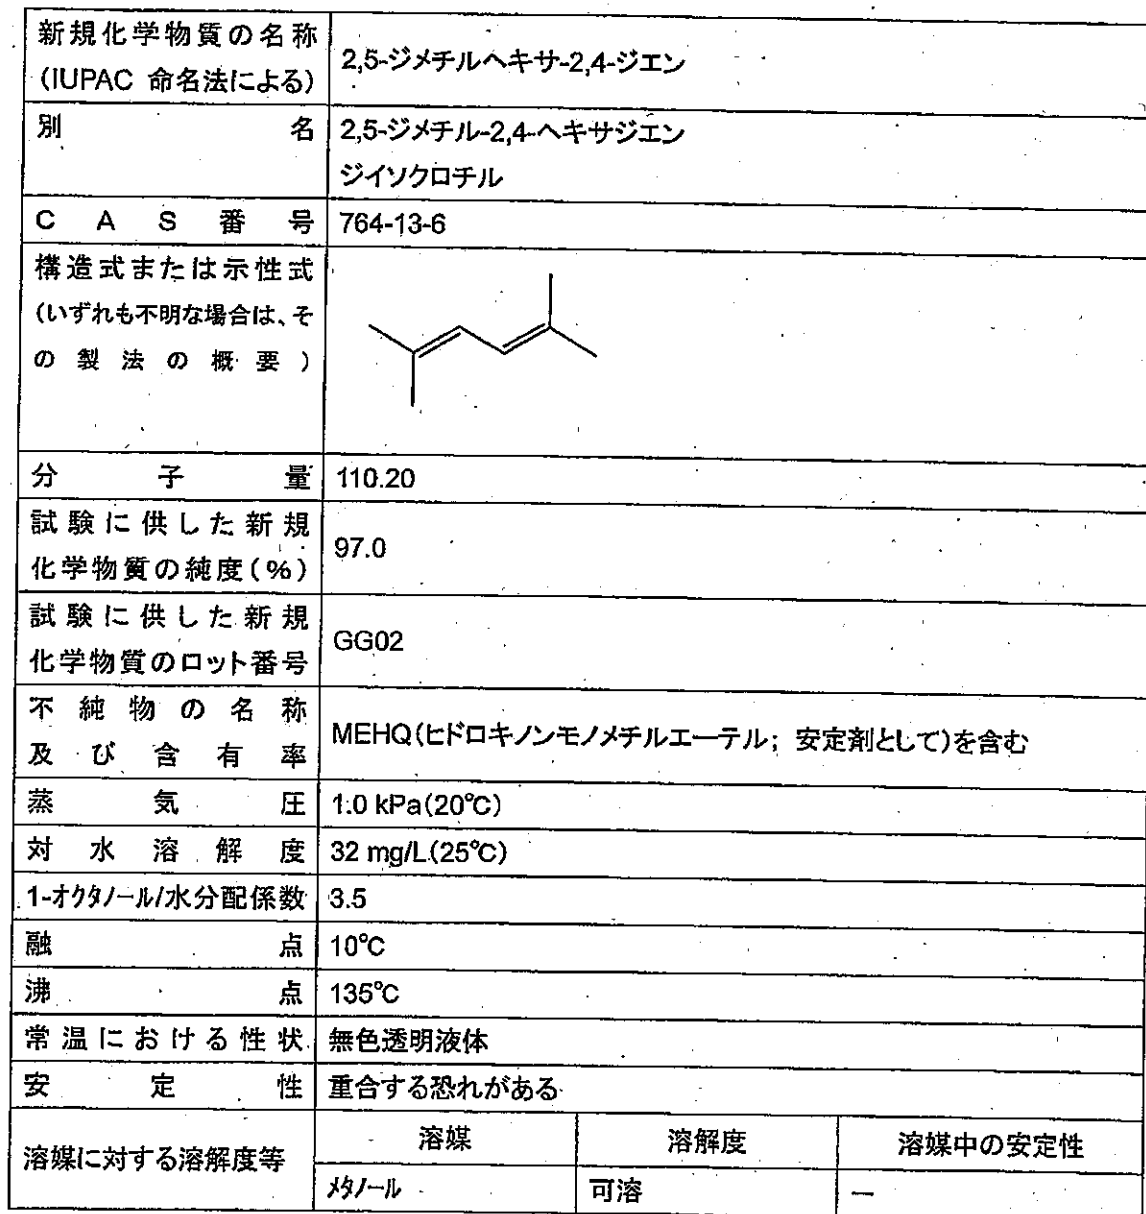 新規化学物質の名称
(IUPAC 命名法による)
2,5-ジメチルヘキサ-2,4-ジエン
別名
2,5-ジメチル-2,4-ヘキサジエン
ジイソクロチル
CAS番号
764-13-6
構造式または示性式
(いずれも不明な場合は、そ
の製法の概要)
分子量
110.20
試験に供した新規
化学物質の純度(%)
97.0
試験に供した新規
化学物質のロット番号
GG02
不純物の名称
及び含有率
MEHQ(ヒドロキノンモノメチルエーテル; 安定剤として)を含む
蒸気圧
1.0 kPa(20℃)
対水溶解度
32 mg/L(25℃)
1-オクタノール/水分配係数
3.5
融点
10℃
沸点
135℃
常温における性状
無色透明液体
安定性
重合する恐れがある
溶媒に対する溶解度等
溶媒
溶解度
溶媒中の安定性
メタノール
可溶
―